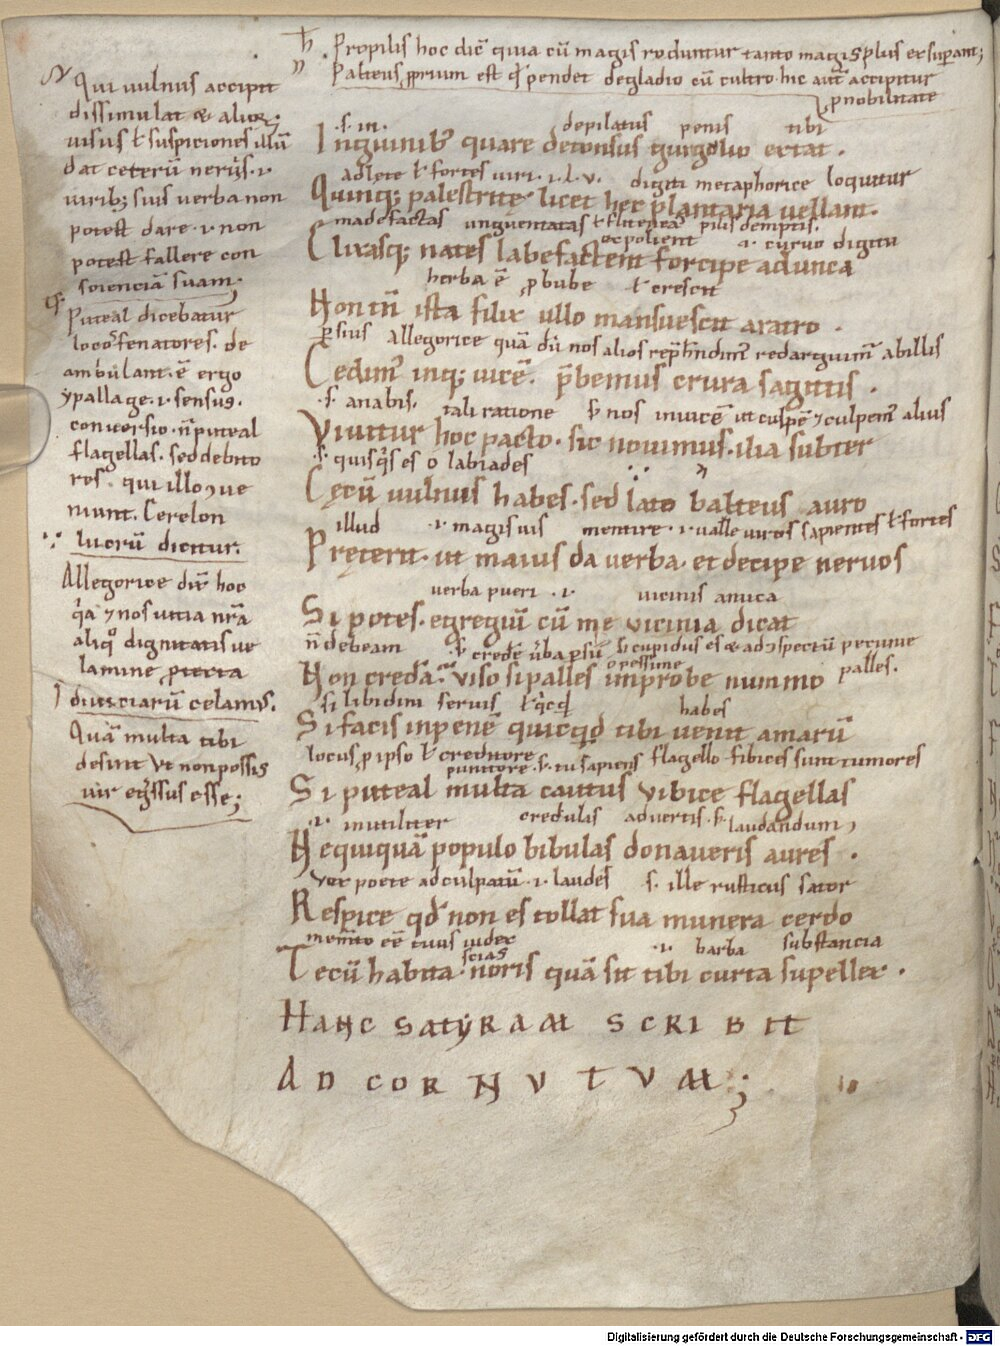 Propilis hoc dic̄ quia cū magis roduntur tanto magis plus et supant;
Palteus ꝓprium est qđ pendet de gladio cū cultro. hic aut̄ accipitur
p nobilitate
Qui uulnus accipit
dissimulat & alioꝝ
uisus ł suspiciones illū
dat ceterū neruis .i.
uirib; suis uerba non
potest dare .i. non
potest fallere con
scienciā suam.
Puteal dicebatur
locꝰ fenatores. de
ambulant. ē ergo
ypallage .i. sensus.
conuersio. n̄ puteal
flagellas. sed debito
res. qui illo ꝯue
niunt. Cerelon
lucrū dicitur.
Allegorice dīr hoc
q̄a ⁊ nos uitia nr̄a
aliqͦ dignitatis ue
lamine ptecta
diusciarū celamꝰ.
Quā multa tibi
desint ut non possis
uir egr̄ssus esse;
.s. in. depilatus penis tibi
Inguinibꝰ quare detonsus gurgulio extat.
adlete ł fortes uiri .i. l. v. digiti metaphorice loquitur
Quinq; palestritę licet hec plantaria uellant.
madefactas unguentatas pilis demptis.
ac polient .a. curuo digitu
Elixasq; nates labefactent forcipe adunca
herba ē ꝓ bube ł crescit
Non tn̄ ista filix ullo mansuescit aratro.
persius allegorice quā dū nos alios rep̄hendimꝰ redarguimꝰ ab illis
Cedimꝰ inq; uicē. p̄bemus crura sagittis.
.s. a nabis. tali ratione .s. nos inuicē ut cuspē ⁊ culpemꝰ alius
Viuitur hoc pacto. sic nouimus. ilia subter
.s. quisqͥs es o labiades
Cęcū uulnus habes. sed lato balteus auro
illud .i. magis uis mentire .i. ualle uiros sapientes ł fortes
Pręterit. ut maius da uerba. et decipe neruos
uerba pueri .i. uicinis amica
Si potes. egregiū cū me uicinia dicat
n̄ debeam .s. credē ūba psū si cupidus es & ad ꝯspectū pecunie
o pessime palles.
Non credā. uiso si palles improbe nummo
si libidini seruis ł qͥcqd habes
Si facis in penē quicqͥd tibi uenit amarū
locus p ipso ł creditore flagello fibices sunt tumores
punitore .s. tu sapiens
Si puteal multa cautus vibice flagellas
.i. inutiliter credulis aduertis .s. laudandum
Nequiquā populo bibulas donaueris aures.
ver poete ad culpatū .i. laudes .s. ille rusticus sator
Respice qđ non es tollat sua munera cerdo
memto eē tuus iudex scias .i. barba substancia
Tecū habita. noris quā sit tibi curta supellex.
HANC SATYRAM SCRIBIT
AD CORNUTUM;
Digitalisierung gefördert durch die Deutsche Forschungsgemeinschaft - DFG